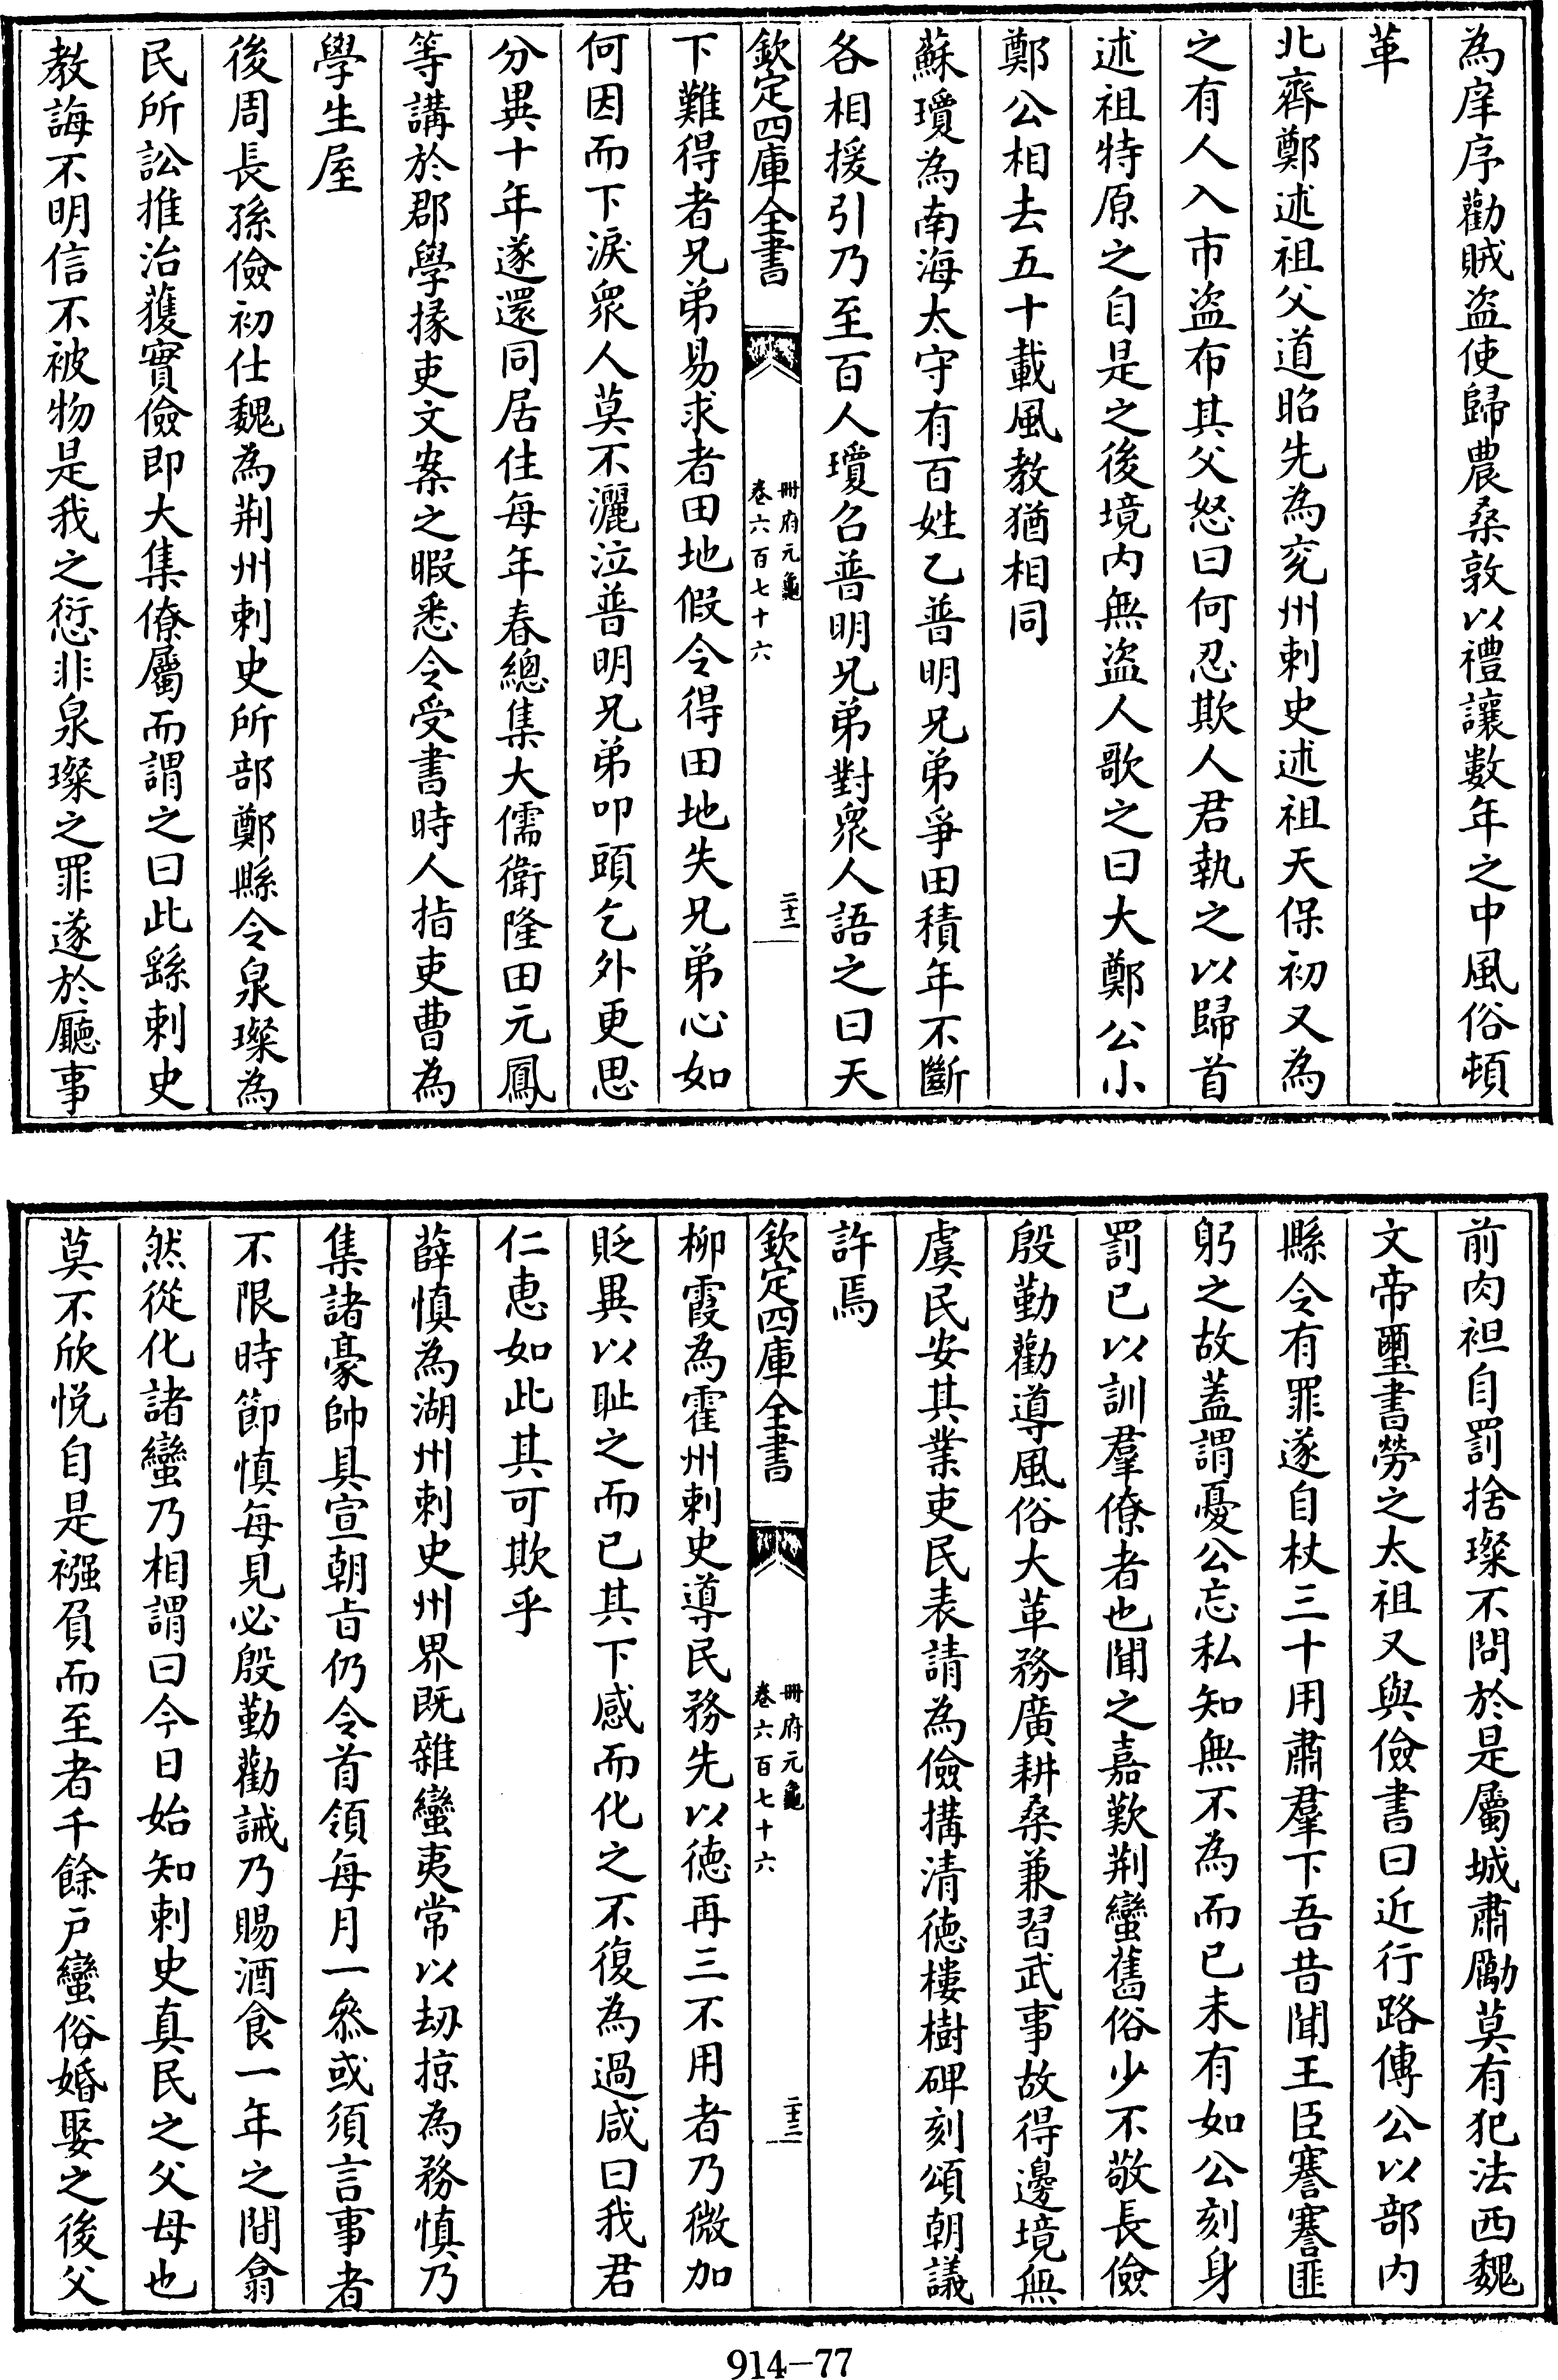 為庠序勸賊盜使歸農桑敦以禮讓數年之中風俗頓
革
北齊鄭述祖父道昭先為兖州刺史述祖天保初又為
之有人入市盜布其父怒曰何忍欺人君執之以歸首
述祖特原之自是之後境内無盜人歌之曰大鄭公小
鄭公相去五十載風教猶相同
蘇瓊為南海太守有百姓乙普明兄弟爭田積年不斷
各相援引乃至百人瓊召普明兄弟對衆人語之曰天
欽定四庫全書
冊府元龜
卷六百七十六
二十二
下難得者兄弟易求者田地假令得田地失兄弟心如
何因而下淚衆人莫不灑泣普明兄弟叩頭乞外更思
分異十年遂還同居住每年春總集大儒衛隆田元鳳
等講於郡學掾吏文案之暇悉令受書時人指吏曹為
學生屋
後周長孫儉初仕魏為荆州刺史所部鄭縣令泉璨為
民所訟推治獲實儉即大集僚屬而謂之曰此繇刺史
教誨不明信不被物是我之愆非泉璨之罪遂於廳事
前肉袒自罰捨璨不問於是屬城肅勵莫有犯法西魏
文帝璽書勞之太祖又與儉書曰近行路傳公以部内
縣令有罪遂自杖三十用肅羣下吾昔聞王臣謇謇匪
躬之故蓋謂憂公忘私知無不為而已未有如公刻身
罰已以訓羣僚者也聞之嘉歎荆蠻舊俗少不敬長儉
殷勤勸導風俗大革務廣耕桑兼習武事故得邊境無
虞民安其業吏民表請為儉搆清德樓樹碑刻頌朝議
許焉
欽定四庫全書
冊府元龜
卷六百七十六
二十三
柳霞為霍州刺史導民務先以德再三不用者乃微加
貶異以耻之而已其下感而化之不復為過咸曰我君
仁惠如此其可欺乎
薛慎為湖州刺史州界既雜蠻夷常以刼掠為務慎乃
集諸豪帥具宣朝㫖仍令首領每月一叅或須言事者
不限時節慎每見必殷勤勸誡乃賜酒食一年之間翕
然從化諸蠻乃相謂曰今日始知刺史真民之父母也
莫不欣悦自是襁負而至者千餘户蠻俗婚娶之後父
914-77